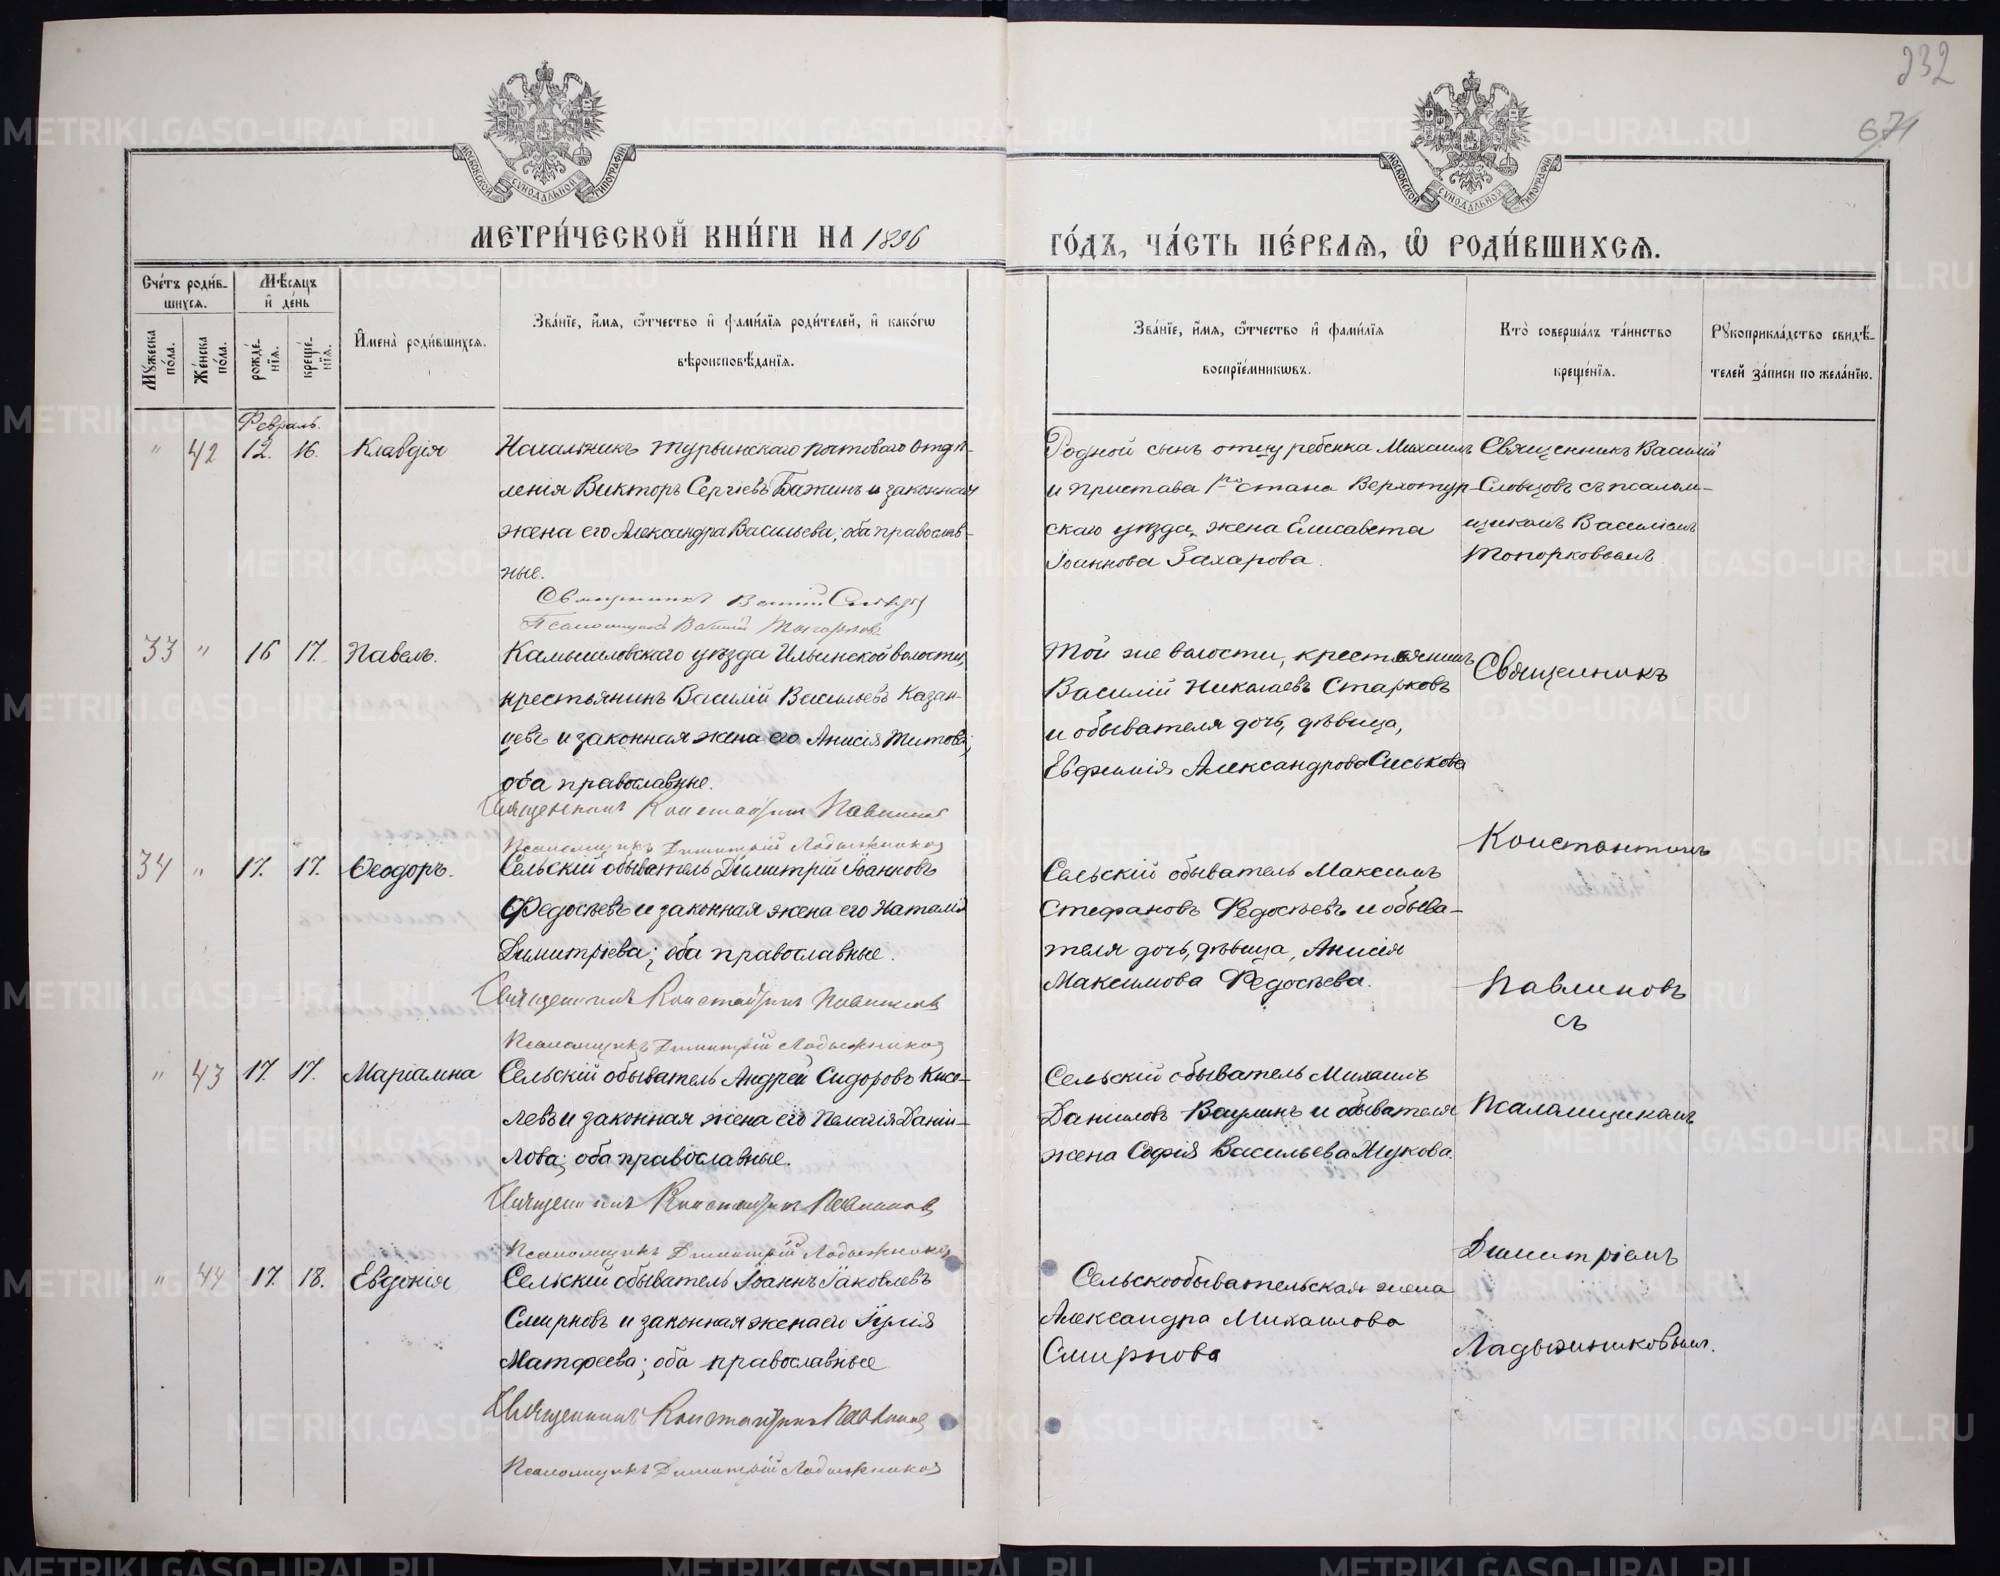 232
671
МОСКОВСКОЙ СУНОДАЛЬНОЙ ТИПОГРАФІИ
МОСКОВСКОЙ СУНОДАЛЬНОЙ ТИПОГРАФІИ
МЕТРИ́ЧЕСКОЙ КНИ́ГИ НА 1896
ГО́ДЪ, ЧА́СТЬ ПЕ́РВАѦ, Ѡ҆ РОДИ́ВШИХСѦ.
Сче́тъ роди́в-
шихсѧ.
Мꙋ́жеска по́ла.
Же́нска по́ла.
Мѣ́сѧцъ
и҆ де́нь
рожде́-
нїѧ.
креще́-
нїѧ.
И҆мена̀ роди́вшихсѧ.
Зва́нїе, и҆́мѧ, ѻ҆́тчество и҆ фами́лїѧ роди́телей, и҆ како́гѡ
вѣроисповѣ́данїѧ.
Зва́нїе, и҆́мѧ, ѻ҆́тчество и҆ фами́лїѧ
воспрїе́мникѡвъ.
Кто̀ соверша́лъ та́инство
креще́нїѧ.
Рꙋкоприкла́дство свидѣ́-
телей за́писи по жела́нїю.
Февраль.
" 42 12. 16. Клавдія
Начальникъ Турьинскаго почтоваго Отдѣ-
ленія Викторъ Сергіевъ Бажинъ и законная
жена его Александра Васильева; оба православ-
ные.
Священникъ Василій Словцовъ
Псаломщикъ Василій Топорковъ
Родной сынъ отцу ребенка Михаилъ
и пристава 1го стана Верхотур-
скаго уѣзда, жена Елисавета
Іоаннова Захарова.
Священникъ Василій
Словцовъ съ псалом-
щикомъ Василіемъ
Топорковымъ.
33 " 16 17. Павелъ.
Камышловскаго уѣзда Ильинской волости,
крестьянинъ Василій Васильевъ Казан-
цевъ и законная жена его Анисія Титова;
оба православные.
Священникъ Константинъ Павлиновъ
Псаломщикъ Димитрій Ладыжниковъ
Той же волости, крестьянинъ
Василій Николаевъ Старковъ
и обывателя дочь, дѣвица,
Евфимія Александрова Сиськова
Священникъ
34 " 17. 17. Ѳеодоръ.
Сельскій обыватель Димитрій Іоанновъ
Федосѣевъ и законная жена его Наталія
Димитріева; оба православные.
Священникъ Константинъ Павлиновъ
Псаломщикъ Димитрій Ладыжниковъ
Сельскій обыватель Максимъ
Стефановъ Федосѣевъ и обыва-
теля дочь, дѣвица, Анисія
Максимова Федосѣева.
Константинъ
Павлиновъ
съ
" 43 17. 17. Маріамна
Сельскій обыватель Андрей Сидоровъ Кисе-
левъ и законная жена его Пелагія Даніи-
лова; оба православные.
Священникъ Константинъ Павлиновъ
Псаломщикъ Димитрій Ладыжниковъ
Сельскій обыватель Михаилъ
Даниловъ Ваулинъ и обывателя
жена Софія Васильева Жукова.
Псаломщикомъ
" 44 17. 18. Евдокія
Сельскій обыватель Іоаннъ Іаковлевъ
Смирновъ и законная жена его Іулія
Матфеева; оба православные
Священникъ Константинъ Павлиновъ
Псаломщикъ Димитрій Ладыжниковъ
Сельскообывательская жена
Александра Михаилова
Смирнова
Димитріемъ
Ладыжниковымъ.
METRIKI.GASO-URAL.RU